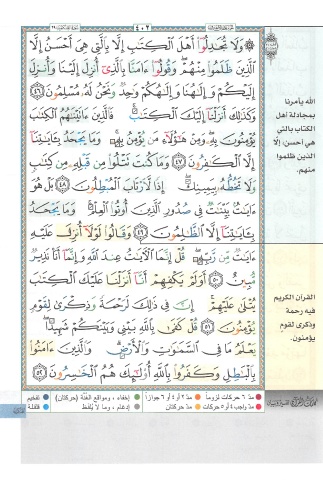 ٤٠٢
وَلَا تُجَٰدِلُوٓا۟ أَهْلَ ٱلْكِتَٰبِ إِلَّا بِٱلَّتِى هِىَ أَحْسَنُ إِلَّا
ٱلَّذِينَ ظَلَمُوا۟ مِنْهُمْ ۖ وَقُولُوٓا۟ ءَامَنَّا بِٱلَّذِىٓ أُنزِلَ إِلَيْنَا وَأُنزِلَ
إِلَيْكُمْ وَإِلَٰهُنَا وَإِلَٰهُكُمْ وَٰحِدٌ وَنَحْنُ لَهُۥ مُسْلِمُونَ ٤٦
وَكَذَٰلِكَ أَنزَلْنَآ إِلَيْكَ ٱلْكِتَٰبَ ۚ فَٱلَّذِينَ ءَاتَيْنَٰهُمُ ٱلْكِتَٰبَ
يُؤْمِنُونَ بِهِۦ ۖ وَمِنْ هَٰٓؤُلَآءِ مَن يُؤْمِنُ بِهِۦ ۚ وَمَا يَجْحَدُ بِـَٔايَٰتِنَآ
إِلَّا ٱلْكَٰفِرُونَ ٤٧ وَمَا كُنتَ تَتْلُوا۟ مِن قَبْلِهِۦ مِن كِتَٰبٍ
وَلَا تَخُطُّهُۥ بِيَمِينِكَ ۖ إِذًا لَّٱرْتَابَ ٱلْمُبْطِلُونَ ٤٨ بَلْ هُوَ
ءَايَٰتٌۢ بَيِّنَٰتٌ فِى صُدُورِ ٱلَّذِينَ أُوتُوا۟ ٱلْعِلْمَ ۚ وَمَا يَجْحَدُ
بِـَٔايَٰتِنَآ إِلَّا ٱلظَّٰلِمُونَ ٤٩ وَقَالُوا۟ لَوْلَآ أُنزِلَ عَلَيْهِ
ءَايَٰتٌ مِّن رَّبِّهِۦ ۖ قُلْ إِنَّمَا ٱلْءَايَٰتُ عِندَ ٱللَّهِ وَإِنَّمَآ أَنَا۠ نَذِيرٌ
مُّبِينٌ ٥٠ أَوَلَمْ يَكْفِهِمْ أَنَّآ أَنزَلْنَا عَلَيْكَ ٱلْكِتَٰبَ
يُتْلَىٰ عَلَيْهِمْ ۚ إِنَّ فِى ذَٰلِكَ لَرَحْمَةً وَذِكْرَىٰ لِقَوْمٍ
يُؤْمِنُونَ ٥١ قُلْ كَفَىٰ بِٱللَّهِ بَيْنِى وَبَيْنَكُمْ شَهِيدًا ۖ
يَعْلَمُ مَا فِى ٱلسَّمَٰوَٰتِ وَٱلْأَرْضِ ۗ وَٱلَّذِينَ ءَامَنُوا۟
بِٱلْبَٰطِلِ وَكَفَرُوا۟ بِٱللَّهِ أُو۟لَٰٓئِكَ هُمُ ٱلْخَٰسِرُونَ ٥٢
الله يأمرنا
بمجادلة أهل
الكتاب بالتي
هي أحسن، إلّا
الذين ظلموا
منهم.
القرآن الكريم
فيه رحمة
وذكرى لقوم
يؤمنون.
مدّ ٦ حركات لزوماً مدّ ٢ أو ٤ أو ٦ جوازاً إخفاء، ومواقع الغنّة (حركتان) تفخيم
مدّ واجب ٤ أو ٥ حركات مدّ حركتان إدغام، وما لا يُلفظ قلقلة